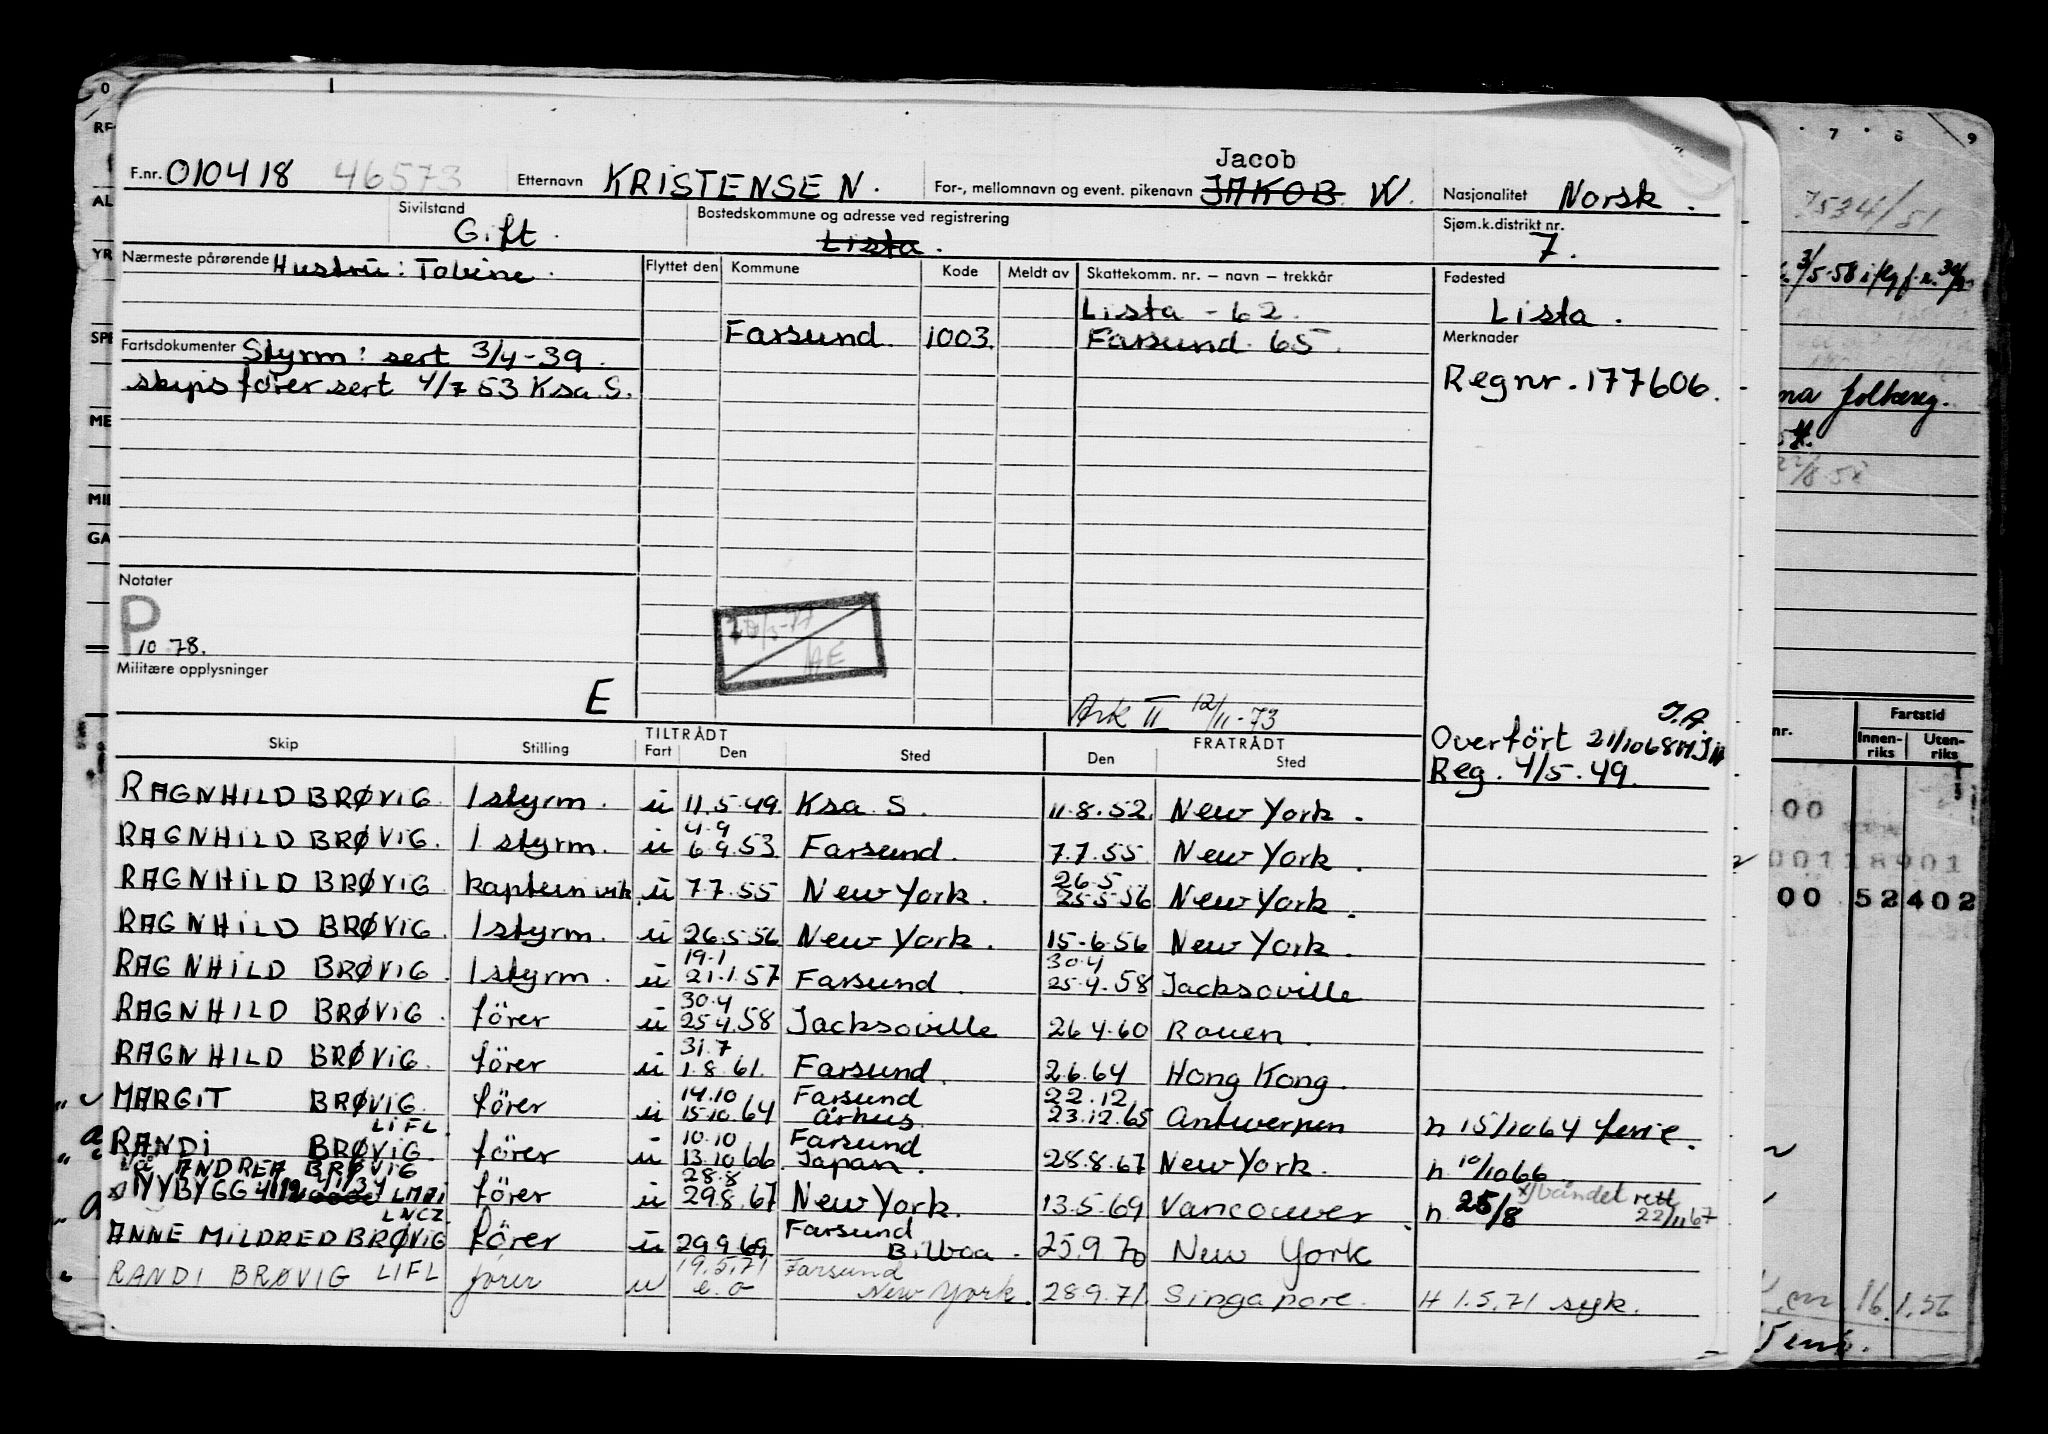 Jacob
F.nr. 010418 46573 Etternavn KRISTENSEN. For-, mellomnavn og event. pikenavn JAKOB W. Nasjonalitet Norsk.
Sivilstand Gift. Bostedskommune og adresse ved registrering Lista. Sjøm.k.distrikt nr. 7.
Nærmeste pårørende Hustru: Tobine. Flyttet den Kommune Kode Meldt av Skattekomm. nr. – navn – trekkår Fødested
Lista - 62. Lista.
Farsund 1003. Farsund 65. Merknader
Fartsdokumenter Styrm: sert 3/4-39.
skipsfører sert 4/7 53 Ksa. S. Regnr. 177606.
Notater
P
10 78.
20/5-77
AE
Militære opplysninger
E
Ark II 12/11-73
J.A.
Overført 21/10 68
Reg. 4/5.49.
TILTRÅDT FRATRÅDT
Skip Stilling Fart Den Sted Den Sted
RAGNHILD BRØVIG 1 styrm. u 11.5.49. Ksa. S. 11.8.52. New York.
4.9
RAGNHILD BRØVIG. 1 styrm. u 6.9.53 Farsund. 7.7.55 New York.
26.5
RAGNHILD BRØVIG kaptein vik. u 7.7.55 New York. 25.5.56 New York.
RAGNHILD BRØVIG. 1 styrm. u 26.5.56 New York. 15.6.56 New York.
19.1 30.4
RAGNHILD BRØVIG. 1 styrm. u 21.1.57 Farsund. 25.4.58 Jacksoville
30.4
RAGNHILD BRØVIG. fører u 25.4.58 Jacksoville 26.4.60 Rouen.
31.7
RAGNHILD BRØVIG. fører u 1.8.61. Farsund. 2.6.64 Hong Kong.
14.10 Farsund 22.12
MARGIT BRØVIG. fører u 15.10.64 Århus. 23.12.65 Antwerpen n 15/10 64 ferie.
LIFL. 10.10 Farsund
RANDI BRØVIG. fører u 13.10.66 Japan. 28.8.67 New York. n 10/10 66
ANDREA BRØVIG 28.8 x/ båndet rett 22/11 67
x) NYBYGG fører u 29.8.67 New York. 13.5.69 Vancouver. n. 25/8
LNCZ. Farsund
ANNE MILDRED BRØVIG fører u 29.9.69 Bilboa. 25.9.70 New York
19.5.71 Farsund
RANDI BRØVIG LIFL fører u e.o New York. 28.9.71. Singapore. H 1.5.71 syk.
7 8 9
7534/51
Fartstid
nr. Innenriks Utenriks
00
00118901
00 52402
16.1.56